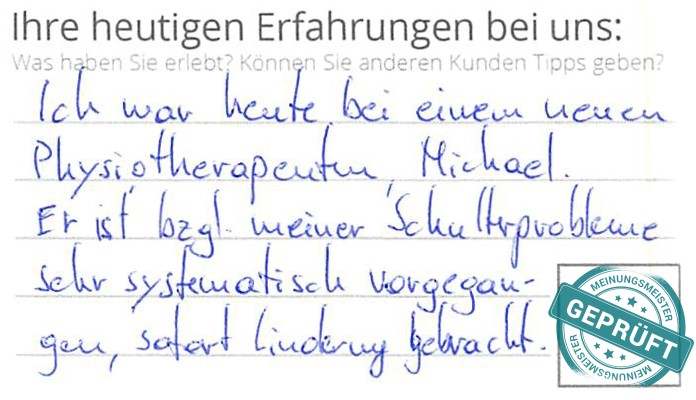 Ihre heutigen Erfahrungen bei uns:
Was haben Sie erlebt? Können Sie anderen Kunden Tipps geben?
Ich war heute bei einem neuen
Physiotherapeuten, Michael.
Er ist bzgl. meiner Schulterprobleme
sehr systematisch vorgegan-
gen, sofort Linderung gebracht.
MEINUNGSMEISTER
GEPRÜFT
MEINUNGSMEISTER